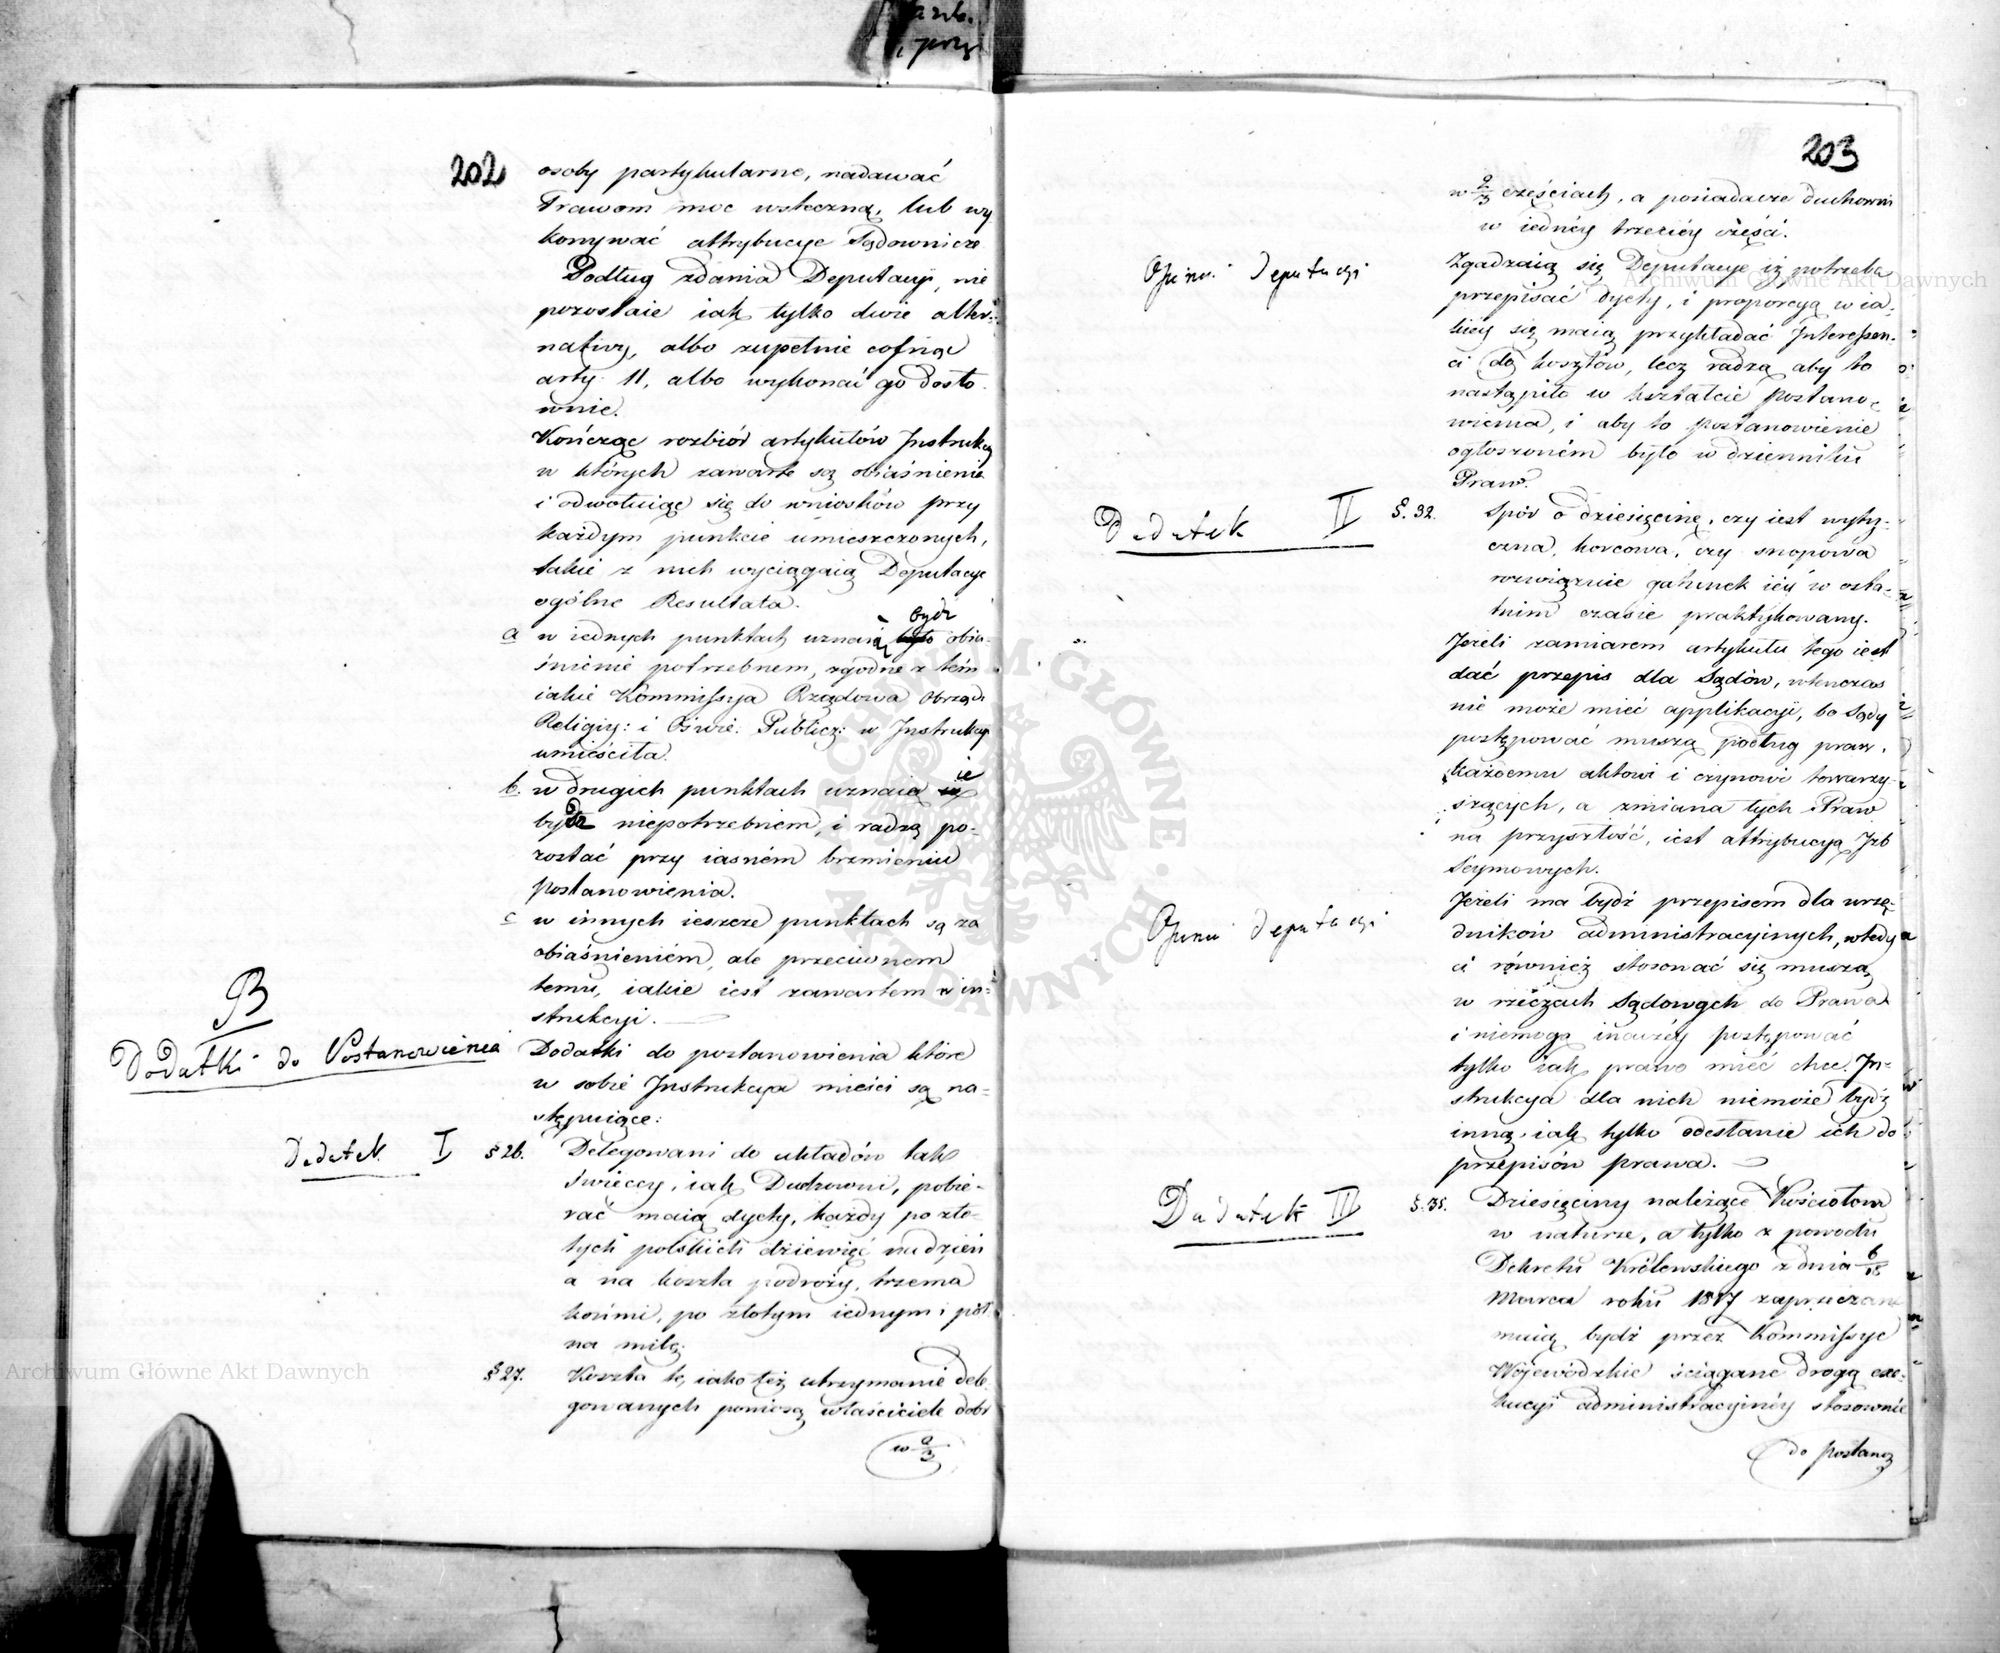 202
osoby partykularne, nadawać
Prawom moc wsteczną, lub wy
konywać attrybucye Sądownicze
Podług zdania Deputacyi, nie
pozostaie iak tylko dwie alter-
natiwy, albo zupełnie cofnąć
arty. 11, albo wykonać go dosło
wnie.
Kończąc rozbiór artykułów Instrukcyi
w których zawarte są obiaśnienia
i odwołuiąc się do wniosków przy
każdym punkcie umieszczonych,
takie z nich wyciągaią Deputacye
ogólne Resultata.
a w iednych punktach uznaią bydź obia-
śnienie potrzebnem, zgodne z tém
iakie Kommissya Rządowa Obrząd:
Religiy: i Oświe. Publicz: w Instrukcyi
umieściła.
b. w drugich punktach uznaią ie
bydź niepotrzebnem, i radzą po-
zostać przy iasném brzmieniu
postanowienia.
c w innych ieszcze punktach są za
obiaśnieniém, ale przeciwnem
temu, iakie iest zawartem w in-
strukcyi.
B
Dodatki do Postanowienia
Dodatki do postanowienia które
w sobie Instrukcya mieści są na-
stępuiące:
Dodatek I
§ 26. Delegowani do układów tak
świeccy, iak Duchowni, pobie-
rać maią dyety, każdy po zło-
tych polskich dziewięć na dzień
a na koszta podroży, trzema
końmi, po złotym iednym i pół
na milę.
§ 27. Koszta te, iako też utrzymanie dele-
gowanych poniosą właściciele dobr
w 2/3
203
w 2/3 częściach, a posiadacze duchowni
w iednéy trzeciéy części.
Opinia Deputacyi
Zgadzaią się Deputacye iż potrzeba
przepisać dyety, i proporcyą w ia-
kiéy się maią przykładać Interessen-
ci do kosztów, lecz radzą aby to
nastąpiło w kształcie postano-
wienia, i aby to postanowienie
ogłoszoném było w dzienniku
Praw.
Dodatek II
§. 32. Spór o dziesięcinę, czy iest wyty-
czna, korcowa, czy snopowa
rozwiązuie gatunek iéy w osta-
tnim czasie praktykowany.
Jeżeli zamiarem artykułu tego iest
dać przepis dla Sądów, wtenczas
nie może mieć applikacyi, bo Sądy
postępować muszą podług praw,
każdemu aktowi i czynowi towarzy-
szących, a zmiana tych Praw
na przyszłość, iest attrybucyą Izb
Seymowych.
Opinia Deputacyi
Jeżeli ma bydź przepisem dla urzę-
dników administracyinych, wtedy
ci również stosować się muszą
w rzeczach Sądowych do Prawa
i niemogą inaczéy postępować
tylko iak prawo mieć chce. In-
strukcya dla nich niemoże bydź
inną, iak tylko odesłanie ich do
przepisów prawa.
Dodatek III
§. 35. Dziesięciny należące Kościołom
w naturze, a tylko z powodu
Dekretu Królewskiego z dnia 6/18
Marca roku 1817 zaprzeczane
maią bydź przez Kommissye
Wojewódzkie ściągane drogą exe-
kucyi administracyinéy stosownie
do postano
Archiwum Główne Akt Dawnych
Archiwum Główne Akt Dawnych
ARCHIWUM GŁÓWNE AKT DAWNYCH